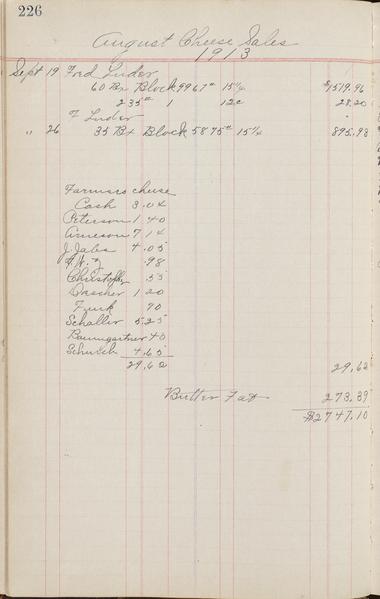 226
August Cheese Sales
1913
Sept 19 Fred Luder
60 Bx Block 9967# 15¼ $1519.96
235# 1 12c 28.20
F Luder
" 26 35 Bx Block 5875# 15¼ 895.93
Farmers cheese
Cash 3.04
Peterson 1.40
Arneson 7.14
J. Jabs 4.05
.98
Christophy .55
Dascher 1.20
Funk 70
Schaller 5.25
Baumgartner 40
Schusch 4.65
29.62 29.62
Butter Fat 273.39
$2747.10